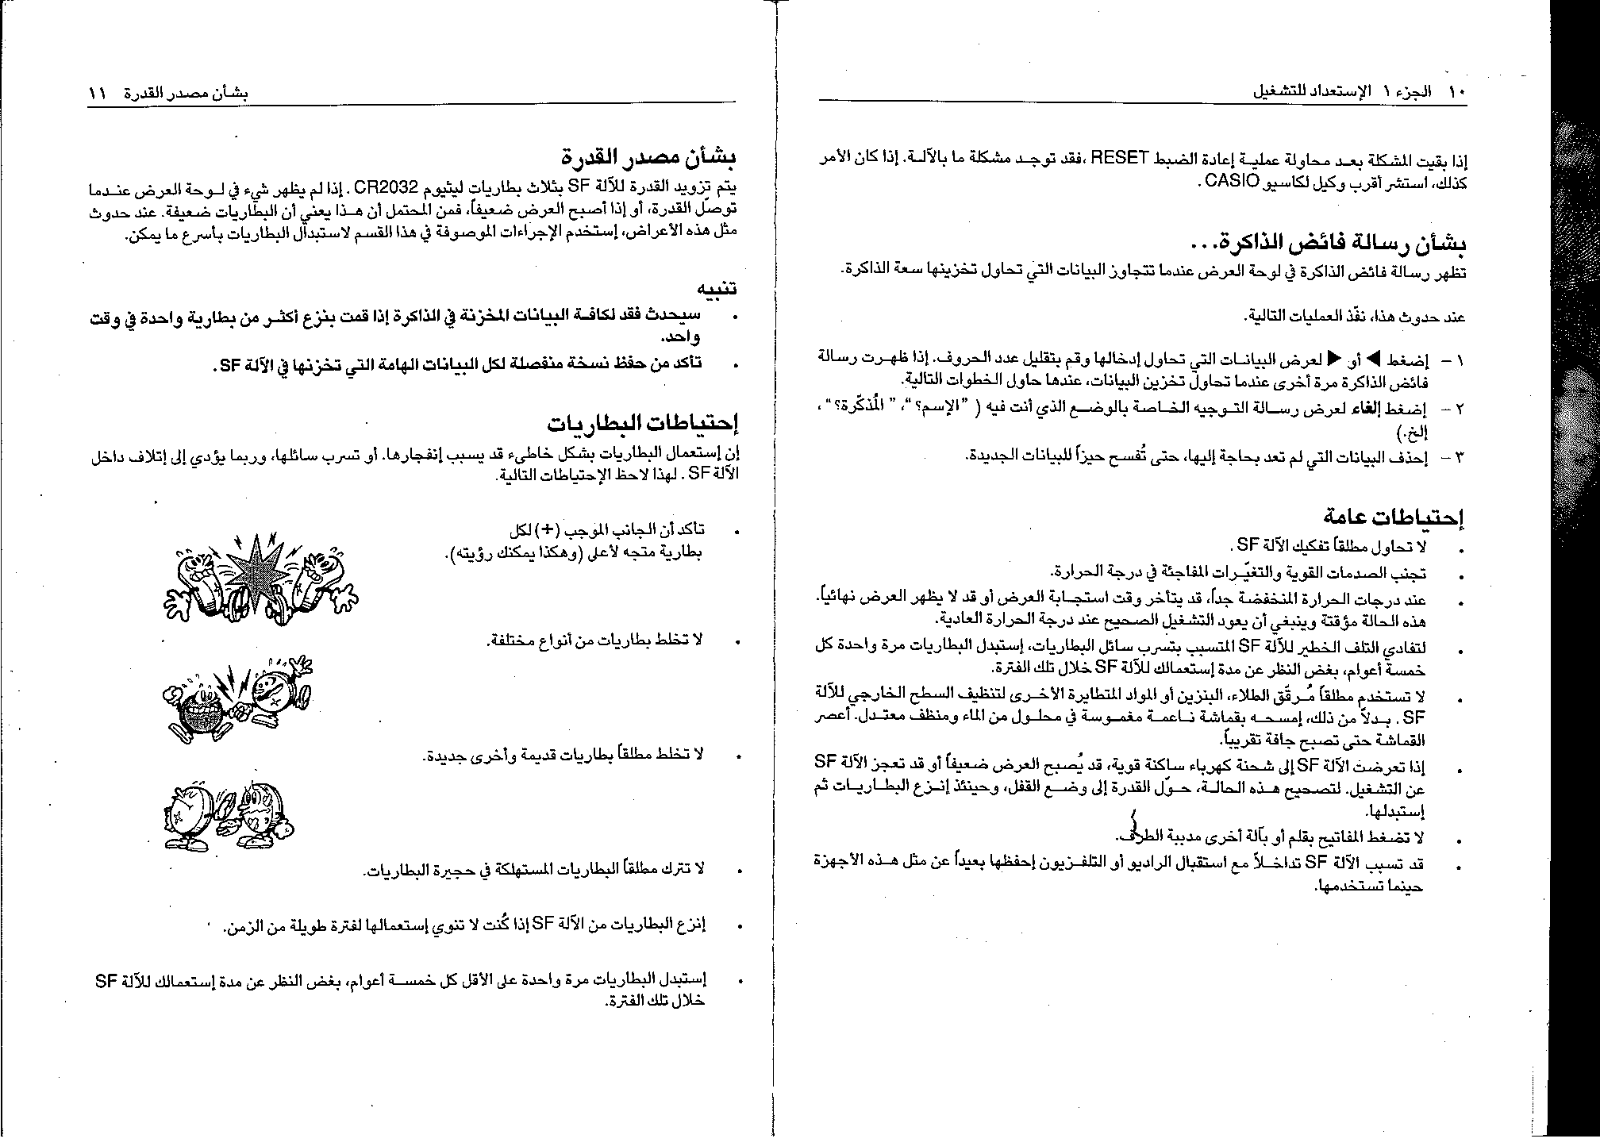 ١٠ الجزء ١ الإستعداد للتشغيل
إذا بقيت المشكلة بعد محاولة عملية إعادة الضبط RESET، فقد توجد مشكلة ما بالآلة. إذا كان الأمر
كذلك، استشر أقرب وكيل لكاسيو CASIO.
بشأن رسالة فائض الذاكرة...
تظهر رسالة فائض الذاكرة في لوحة العرض عندما تتجاوز البيانات التي تحاول تخزينها سعة الذاكرة.
عند حدوث هذا، نفّذ العمليات التالية.
١ – إضغط ◀ أو ▶ لعرض البيانات التي تحاول إدخالها وقم بتقليل عدد الحروف. إذا ظهرت رسالة
فائض الذاكرة مرة أخرى عندما تحاول تخزين البيانات، عندها حاول الخطوات التالية.
٢ – إضغط إلغاء لعرض رسالة التوجيه الخاصة بالوضع الذي أنت فيه ( ”الإسم؟“، ” المُذكّرة؟“،
إلخ.)
٣ – إحذف البيانات التي لم تعد بحاجة إليها، حتى تُفسح حيزاً للبيانات الجديدة.
إحتياطات عامة
• لا تحاول مطلقاً تفكيك الآلة SF.
• تجنب الصدمات القوية والتغيّرات المفاجئة في درجة الحرارة.
• عند درجات الحرارة المنخفضة جداً، قد يتأخر وقت استجابة العرض أو قد لا يظهر العرض نهائياً.
هذه الحالة مؤقتة وينبغي أن يعود التشغيل الصحيح عند درجة الحرارة العادية.
• لتفادي التلف الخطير للآلة SF المتسبب بتسرب سائل البطاريات، إستبدل البطاريات مرة واحدة كل
خمسة أعوام، بغض النظر عن مدة إستعمالك للآلة SF خلال تلك الفترة.
• لا تستخدم مطلقاً مُرقّق الطلاء، البنزين أو المواد المتطايرة الأخرى لتنظيف السطح الخارجي للآلة
SF. بدلاً من ذلك، إمسحه بقماشة ناعمة مغموسة في محلول من الماء ومنظف معتدل. أعصر
القماشة حتى تصبح جافة تقريباً.
• إذا تعرضت الآلة SF إلى شحنة كهرباء ساكنة قوية، قد يُصبح العرض ضعيفاً أو قد تعجز الآلة SF
عن التشغيل. لتصحيح هذه الحالة، حوّل القدرة إلى وضع القفل، وحينئذ إنزع البطاريات ثم
إستبدلها.
• لا تضغط المفاتيح بقلم أو بآلة أخرى مدببة الطرف.
• قد تسبب الآلة SF تداخلاً مع استقبال الراديو أو التلفزيون إحفظها بعيداً عن مثل هذه الأجهزة
حينما تستخدمها.
بشأن مصدر القدرة ١١
بشأن مصدر القدرة
يتم تزويد القدرة للآلة SF بثلاث بطاريات ليثيوم CR2032. إذا لم يظهر شيء في لوحة العرض عندما
توصّل القدرة، أو إذا أصبح العرض ضعيفاً، فمن المحتمل أن هذا يعني أن البطاريات ضعيفة. عند حدوث
مثل هذه الأعراض، إستخدم الإجراءات الموصوفة في هذا القسم لاستبدال البطاريات بأسرع ما يمكن.
تنبيه
• سيحدث فقد لكافة البيانات المخزنة في الذاكرة إذا قمت بنزع أكثر من بطارية واحدة في وقت
واحد.
• تأكد من حفظ نسخة منفصلة لكل البيانات الهامة التي تخزنها في الآلة SF.
إحتياطات البطاريات
إن إستعمال البطاريات بشكل خاطيء قد يسبب إنفجارها. أو تسرب سائلها، وربما يؤدي إلى إتلاف داخل
الآلة SF. لهذا لاحظ الإحتياطات التالية.
• تأكد أن الجانب الموجب (+) لكل
بطارية متجه لأعلى (وهكذا يمكنك رؤيته).
• لا تخلط بطاريات من أنواع مختلفة.
• لا تخلط مطلقاً بطاريات قديمة وأخرى جديدة.
• لا تترك مطلقاً البطاريات المستهلكة في حجيرة البطاريات.
• إنزع البطاريات من الآلة SF إذا كُنت لا تنوي إستعمالها لفترة طويلة من الزمن.
• إستبدل البطاريات مرة واحدة على الأقل كل خمسة أعوام، بغض النظر عن مدة إستعمالك للآلة SF
خلال تلك الفترة.